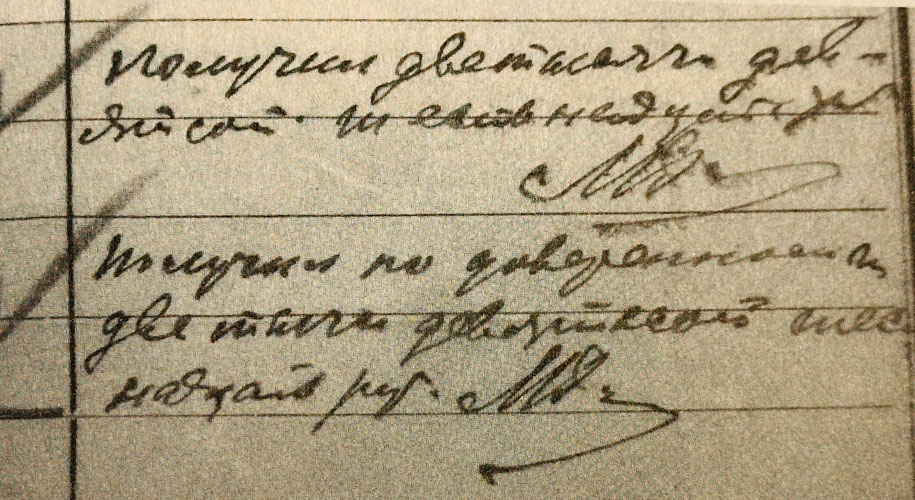 Получил две тысячи дев-
ятсот шестнадцать р
Получил по доверенности
две тысячи девятьсот шес
надцать руб.